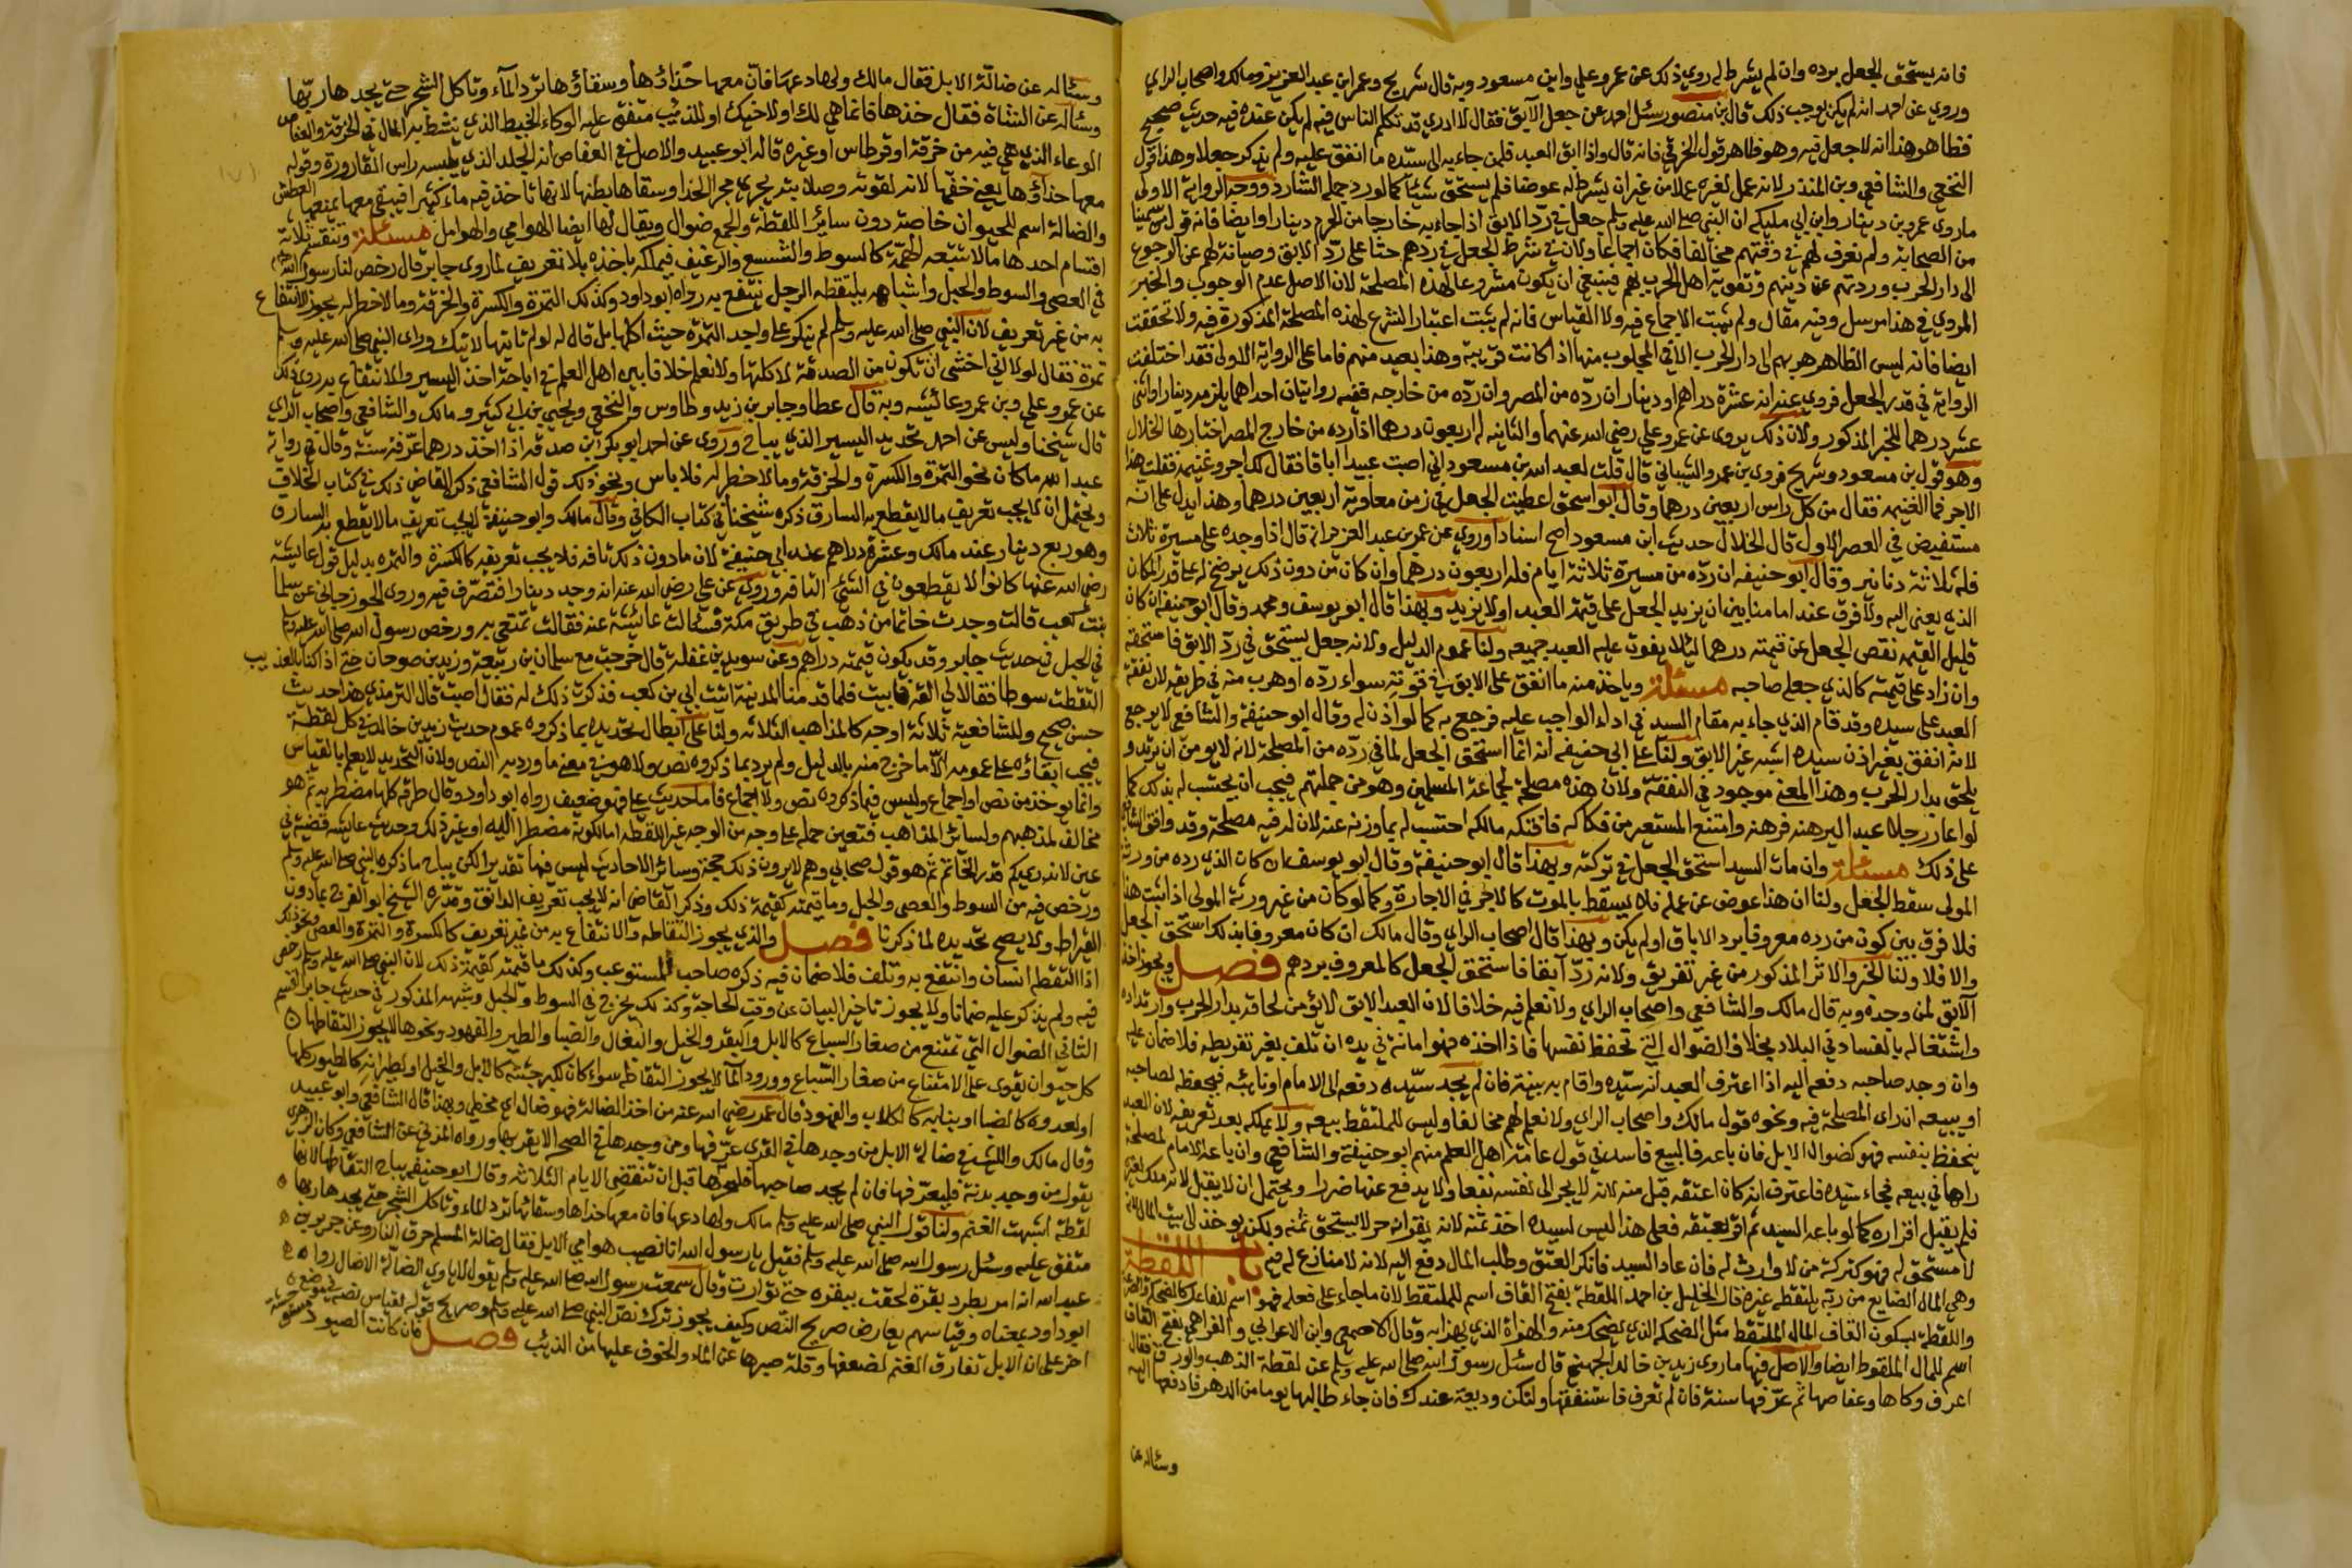 فانه يستحق الجعل برده وان لم يشرط له روي ذلك عن عمر وعلي وابن مسعود وبه قال شريح وعمر ابن عبد العزيز ومالك واصحاب الراي
وروي عن احمد انه لم يكن يوجب ذلك قال بن منصور سئل احمد عن جعل الآبق فقال لا ادري قد تكلم الناس فيه لم يكن عنده فيه حديث صحيح
فظاهر هذا انه لا جعل فيه وهو ظاهر قول الخرقي فانه قال واذا ابق العبد فلمن جاء به الى سيّده ما انفق عليه ولم يذكر جعلا وهذا قول
النخعي والشافعي وبن المنذر لانه عمل لغيره عملا من غير ان يشرط له عوضا فلم يستحق شيئا كما لو رد جمله الشارد ووجه الرواية الاولى
ماروى عمرو بن دينار وابن ابي مليكه ان النبي صلى الله عليه وسلم جعل في ردّ الابق اذا جاء به خارجا من الحرم دينارا وايضا فانه قول من سمينا
من الصحابة ولم نعرف لهم في وقتهم مخالفا فكان اجماعا ولان في شرط الجعل في ردهم حثا على ردّ الابق وصيانة لهم عن الرجوع
الى دار الحرب وردتهم عن دينهم وتقوية اهل الحرب بهم فينبغي ان يكون مشروعا لهذه المصلحة لان الاصل عدم الوجوب والخبر
المروي في هذا مرسل وفيه مقال ولم يثبت الاجماع فيه ولا القياس فانه لم يثبت اعتبار الشرع لهذه المصلحة المذكورة فيه ولا تحققت
ايضا فانه ليس الظاهر هربهم الى دار الحرب الا في المجلوب منها اذا كانت قريبة وهذا بعيد منهم فاما على الرواية الاولى فقد اختلفت
الرواية في قدر الجعل فروي عنه انه عشرة دراهم او دينار ان ردّه من المصر وان ردّه من خارجه ففيه روايتان احداهما يلزمه دينار او اثنى
عشر درهما للخبر المذكور ولان ذلك يروى عن عمر وعلي رضي الله عنهما والثانيه له اربعون درهما اذا رده من خارج المصر اختارها الخلال
وهو قول بن مسعود وشريح فروى بن عمرو الشيباني قال قلت لعبد الله بن مسعود اني اصبت عبيدا اباقا فقال لك اجر وغنيمه فقلت هذا
الاجر فما الغنيمه فقال من كل راس اربعين درهما وقال ابو اسحق اعطيت الجعل في زمن معاوية اربعين درهما وهذا يدل على انه
مستفيض في العصر الاول قال الخلال حديث ابن مسعود اصح اسنادا وروي عن عمر بن عبد العزيز انه قال اذا وجده على مسيرة ثلاث
فله ثلاثة دنانير وقال ابو حنيفه ان ردّه من مسيرة ثلاثة ايام فله اربعون درهما وان كان من دون ذلك يرضخ له على قدر المكان
الذي يعنى اليه ولا فرق عند امامنا بين ان يزيد الجعل على قيمة العبد او لا يزيد وبهذا قال ابو يوسف ومحمد وقال ابو حنيفه ان كان
قليل القيمه نقص الجعل عن قيمته درهما لئلا يفوت عليه العبد جميعه ولنا عموم الدليل ولانه جعل يستحق في ردّ الابق فاستحقه
وان زاد على قيمته كالذي جعله صاحبه مسئلة وياخذ منه ما انفق على الابق في قوته سواء ردّه او هرب منه في طريقه لان نفقة
العبد على سيده وقد قام الذي جاء به مقام السيد في اداء الواجب عليه فرجع به كما لو اذن له وقال ابو حنيفة والشافعي لا يرجع
لانه انفق بغير اذن سيده اشبه غير الابق ولنا على ابي حنيفه انه انما استحق الجعل لما في ردّه من المصلحة لانه لا يومن ان يرتد و
يلحق بدار الحرب وهذا المعنى موجود في النفقة ولان هذه مصلحة لجماعة المسلمين وهو من جملتهم فيجب ان يحتسب له بذلك كما
لو اعار رجلا عبدا ليرهنه فرهنه وامتنع المستعير من فكاكه فافتكه مالكه احتسب له بما وزنه عنه لان له فيه مصلحة وقد وافق الشافعي
على ذلك مسئلة وان مات السيد استحق الجعل في تركته وبهذا قال ابو حنيفة وقال ابو يوسف ان كان الذي رده من ورثة
المولى سقط الجعل ولنا ان هذا عوض عن عمله فلا يسقط بالموت كالاجر في الاجارة وكما لو كان من غير ورثة المولى اذا ثبت هذا
فلا فرق بين كون من رده معروفا برد الاباق او لم يكن وبهذا قال اصحاب الراي وقال مالك ان كان معروفا بذلك استحق الجعل
والا فلا ولنا الخبر والاثر المذكور من غير تفريق ولانه ردّ آبقا فاستحق الجعل كالمعروف بردهم فصل ويجوز اخذ
الآبق لمن وجده وبه قال مالك والشافعي واصحاب الراي ولا نعلم فيه خلافا لان العبد الابق لا يؤمن لحاقه بدار الحرب وارتداده
واشتغاله بالفساد في البلاد بخلاف الضوال التي تحفظ نفسها فاذا اخذه فهو امانة في يده ان تلف بغير تفريطه فلا ضمان عليه
وان وجد صاحبه دفعه اليه اذا اعترف العبد انه سيّده واقام به بينة فان لم يجد سيّده دفعه الى الامام او نايبه فيحفظه لصاحبه
او يبيعه ان راى المصلحة فيه ونحوه قول مالك واصحاب الراي ولا نعلم لهم مخالفا وليس للملتقط بيعه ولا يملكه بعد تعريفه لان العبد
يتحفظ بنفسه فهو كضوال الابل فان باعه فالبيع فاسد في قول عامة اهل العلم منهم ابو حنيفة والشافعي وان باعه الامام لمصلحة
راها في بيعه فجاء سيّده فاعترف انه كان اعتقه قبل منه لانه لا يجر الى نفسه نفعا ولا يدفع عنها ضررا ويحتمل ان لا يقبل لانه ملك لغيره
فلم يقبل اقراره كما لو باعه السيد ثم اقر بعتقه فعلى هذا ليس لسيده اخذ ثمنه لانه يقر انه حر لا يستحق ثمنه ولكن يوخذ الى بيت المال لانه
لا مستحق له فهو كتركة من لا وارث له فان عاد السيد فانكر العتق وطلب المال دفع اليه لانه لا منازع له فيه باب اللقطة
وهي المال الضايع من ربّه يلتقطه غيره قال الخليل بن احمد اللقطة بفتح القاف اسم للملتقط لان ما جاء على فعله فهو اسم للفاعل كالضحكة
واللقطة بسكون القاف المال الملتقط مثل الضحكه الذي يضحك منه والهزأة الذي يهزا به وقال الاصمعي وابن الاعرابي والفراهي بفتح القاف
اسم للمال الملقوط ايضا والاصل فيها ما روى زيد بن خالد الجهني قال سئل رسول الله صلى الله عليه وسلم عن لقطة الذهب والورق فقال
اعرف وكاها وعفاصها ثم عرّفها سنة فان لم تعرف فاستنفقها ولتكن وديعة عندك فان جاء طالبها يوما من الدهر فادفعها اليه
وسئاله عن
وسئاله عن ضالة الابل فقال مالك ولها دعها فان معها حذاؤها وسقاؤها ترد المآء وتاكل الشجر حتى يجدها ربّها
وسئاله عن الشاة فقال خذها فانما هي لك او لاخيك او للذئب متفق عليه الوكاء الخيط الذي يشد به المال في الخرقة والعفاص
الوعاء الذي هي فيه من خرقة او قرطاس او غيره قاله ابو عبيد والاصل في العفاص انه الجلد الذي يلبسه راس القارورة وقوله
معها حذاؤها يعني خفها لانه لقوته وصلابته يجري مجرى الحذا وسقاها بطنها لانها تاخذ فيه ماء كثيرا فيبقى معها يمنعها العطش
والضالة اسم للحيوان خاصة دون ساير اللقطة والجمع ضوال ويقال لها ايضا الهوامي والهوامل مسئلة وتنقسم ثلاثة
اقسام احدها مالا تتبعه الهمّة كالسوط والشسع والرغيف فيملكه باخذه بلا تعريف لما روى جابر قال رخص لنا رسول الله
في العصى والسوط والحبل واشباهه يلتقطه الرجل ينتفع به رواه ابو داود وكذلك التمرة والكسرة والخرقة وما لا خطر له يجوز الانتفاع
به من غير تعريف لان النبي صلى الله عليه وسلم لم ينكر على واجد التمرة حيث اكلها بل قال له لو لم تاتها لاتتك وراى النبي صلى الله عليه وسلم
تمرة فقال لولا اني اخشى ان تكون من الصدقة لاكلتها ولا نعلم خلافا بين اهل العلم في اباحة اخذ اليسير والانتفاع به روي ذلك
عن عمر وعلي وبن عمر وعائشه وبه قال عطا وجابر بن زيد وطاوس والنخعي ويحيى بن ابي كثير ومالك والشافعي واصحاب الراي
قال شيخنا وليس عن احمد تحديد اليسير الذي يباح وروى عن احمد ابو بكر ابن صدقه اذا اخذ درهما عرّفه سنة وقال في رواية
عبد الله ما كان نحو التمرة والكسرة والخرقة وما لا خطر له فلا باس ونحو ذلك قول الشافعي ذكر القاضي ذلك في كتاب الخلاف
ويحتمل ان لا يجب تعريف مالا يقطع به السارق ذكره شيخنا في كتاب الكافي وقال مالك وابو حنيفة لا يجب تعريف مالا يقطع به السارق
وهو ربع دينار عند مالك وعشرة دراهم عند ابي حنيفة لان مادون ذلك تافه فلا يجب تعريفه كالكسرة والتمره بدليل قول عايشة
رضي الله عنها كانوا لا يقطعون في الشيء التافه وروي عن علي رضي الله عنه انه وجد دينارا فتصرّف فيه وروى الجوزجاني عن سلما
بنت كعب قالت وجدت خاتما من ذهب في طريق مكة فسالت عائشة عنه فقالت تمتعي به ورخص رسول الله صلى الله عليه وسلم
في الحبل في حديث جابر وقد يكون قيمته دراهم وعن سويد بن غفلة قال خرجت مع سلمان بن ربيعة وزيد بن صوحان حتى اذا كنا بالعذيب
التقطت سوطا فقالا لي القه فابيت فلما قدمنا المدينة اتيت ابي بن كعب فذكرت ذلك له فقال اصبت قال الترمذي هذا حديث
حسن صحيح وللشافعية ثلاثة اوجه كالمذاهب الثلاثه ولنا على ابطال تحديده بما ذكروه عموم حديث زيد بن خالد في كل لقطة
فيجب ابقاؤه على عمومه الا ما خرج منه بالدليل ولم يرد بما ذكروه نص ولا هو في معنى ما ورد به النص ولان التحديد لا يعلم بالقياس
وانما يوخذ من نص او اجماع وليس فيما ذكروه نص ولا اجماع فاما حديث علي فهو ضعيف رواه ابو داود وقال طرقه كلها مضطربه ثم هو
مخالف لمذهبهم ولسائر المذاهب فتعين حمله على وجه من الوجوه غير اللقطه اما لكونه مضطرا اليه او غير ذلك وحديث عايشه قضية في
عين لا ندري كم قدر الخاتم ثم هو قول صحابي وهم لا يرون ذلك حجة وسائر الاحاديث ليس فيها تقدير لكن يباح ما ذكره النبي صلى الله عليه وسلم
ورخص فيه من السوط والعصى والحبل وما قيمته كقيمة ذلك وذكر القاضي انه لا يجب تعريف الدانق وقدّره الشيخ ابو الفرج بما دون
القيراط ولا يصح تحديده لما ذكرنا فصل والذي يجوز التقاطه والانتفاع به من غير تعريف كالكسرة والتمرة والعصى ونحو ذلك
اذا التقطه انسان وانتفع به وتلف فلا ضمان فيه ذكره صاحب المستوعب وكذلك ما قيمته كقيمة ذلك لان النبي صلى الله عليه وسلم رخص
فيه ولم يذكر عليه ضمانا ولا يجوز تاخير البيان عن وقت الحاجة وكذلك يخرج في السوط والحبل وشبهه المذكور في حديث جابر القسم
الثاني الضوال التي تمتنع من صغار السباع كالابل والبقر والخيل والبغال والضبا والطير والفهود ونحوها لا يجوز التقاطها
كل حيوان يقوى على الامتناع من صغار السّباع وورود المآء لا يجوز التقاطه سواء كان لكبر جثته كالابل والخيل او لطيرانه كالطيور كلها
او لعدوه كالضبا او بنابه كالكلاب والفهود قال عمر رضي الله عنه من اخذ الضالة فهو ضال اي مخطي وبهذا قال الشافعي وابو عبيد
وقال مالك والليث في ضالة الابل من وجدها في القرى عرّفها ومن وجدها في الصحرا لا يقربها ورواه المزني عن الشافعي وكان الزهري
يقول من وجد بدنة فليعرّفها فان لم يجد صاحبها فلينحرها قبل ان تنقضي الايام الثلاثه وقال ابو حنيفه يباح التقاطها لانها
لقطة اشبهت الغنم ولنا قول النبي صلى الله عليه وسلم مالك ولها دعها فان معها حذاها وسقائها ترد الماء وتاكل الشجر حتى يجدها ربها
متفق عليه وسئل رسول الله صلى الله عليه وسلم فقيل يا رسول الله انا نصيب هوامي الابل فقال ضالة المسلم حرق النار وعن جرير بن
عبد الله انه امر بطرد بقرة لحقت ببقره حتى توارت وقال سمعت رسول الله صلى الله عليه وسلم يقول لا ياوي الضالة الا ضال رواه
ابو داود بمعناه وقياسهم يعارض صريح النّص وكيف يجوز ترك نصّ النبي صلى الله عليه وسلم وصريح قوله لقياس نصه في موضع
اخر على ان الابل تفارق الغنم لضعفها وقلة صبرها عن الماء والخوف عليها من الذئب فصل فان كانت الصيود